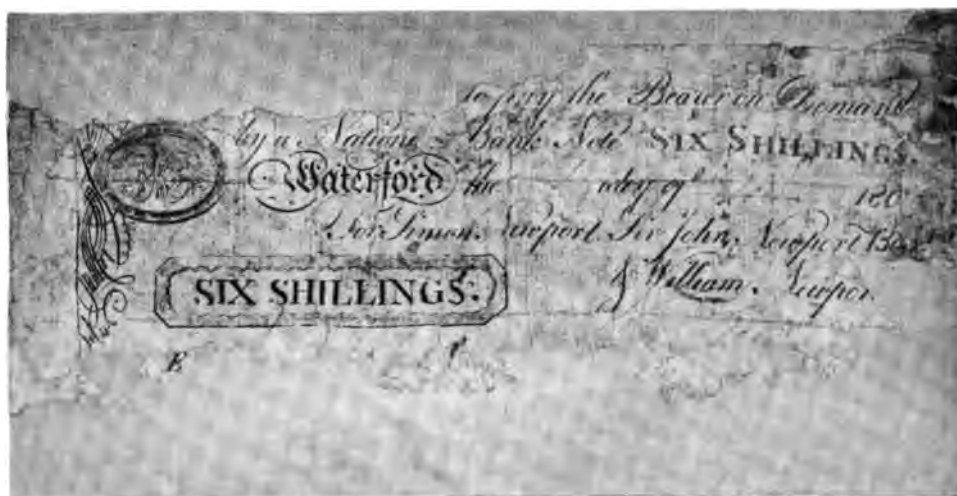 to pay the Bearer on Demand
by a National Bank Note SIX SHILLINGS.
Waterford the day of 180
For Simon Newport Sir John Newport Bar
& William Newpor
SIX SHILLINGS:
E